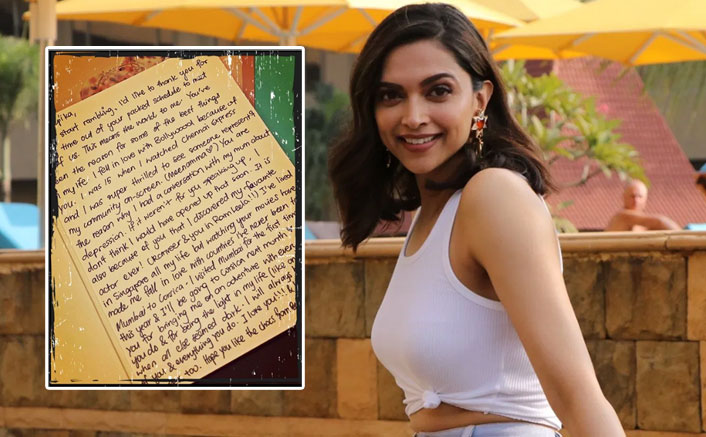 start rambling, i'd like to thank you for
time out of your packed schedule to meet
of us. This means the world to me. You've
the reason for some of the best things
my life. I fell in love with Bollywood because of
I was 15 when I watched Chennai Express
and I was super thrilled to see someone represent
my community on-screen. (Meenamma ♡) You are
the reason why I had a conversation with my mum about
depression. If it weren't for you speaking up, I
don't think I would have opened up that soon. It is
also because of you that I discovered my favourite
actor ever! (Ranveer & you in Ram Leela!!) I've lived
in Singapore all my life but watching your movies have
made me fall in love with countries I've never been to
Mumbai to Corsica. I visited Mumbai for the first time
this year & I'll be going to Corsica next
you for bringing me on an adventure with
you do & for being the light in my life (like
when all else seemed dark. I will always
you & everything you do. I love you!!! &
too. Hope you like the chocs